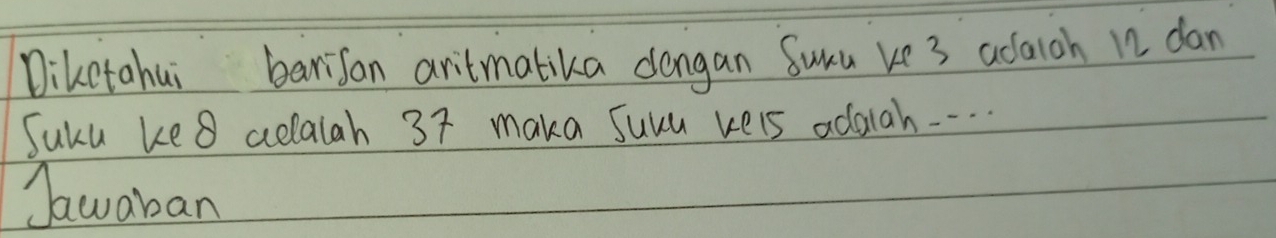 Diketahui barisan aritmatika dengan Suku ke 3 adalah 12 dan
Suku ke 8 adalah 37 maka Suku ke15 adalah ....
Jawaban